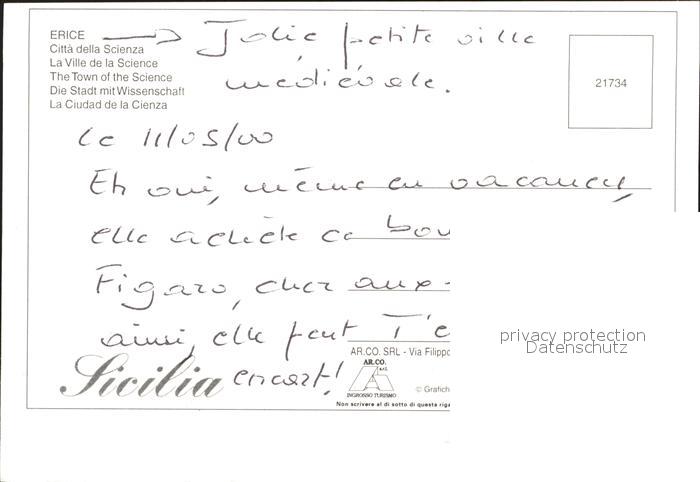 ERICE → Jolie petite ville
Città della Scienza
La Ville de la Science
The Town of the Science médiévale.
Die Stadt mit Wissenschaft
La Ciudad de la Cienza
21734
le 11/05/00
Eh oui, même en vacances,
elle achète ce bou
Figaro, cher aux
ainsi, elle peut t'e
encart!
Sicilia
AR.CO. SRL - Via Filippo
AR.CO.
s.r.l.
INGROSSO TURISMO
© Grafich
Non scrivere al di sotto di questa riga
privacy protection
Datenschutz